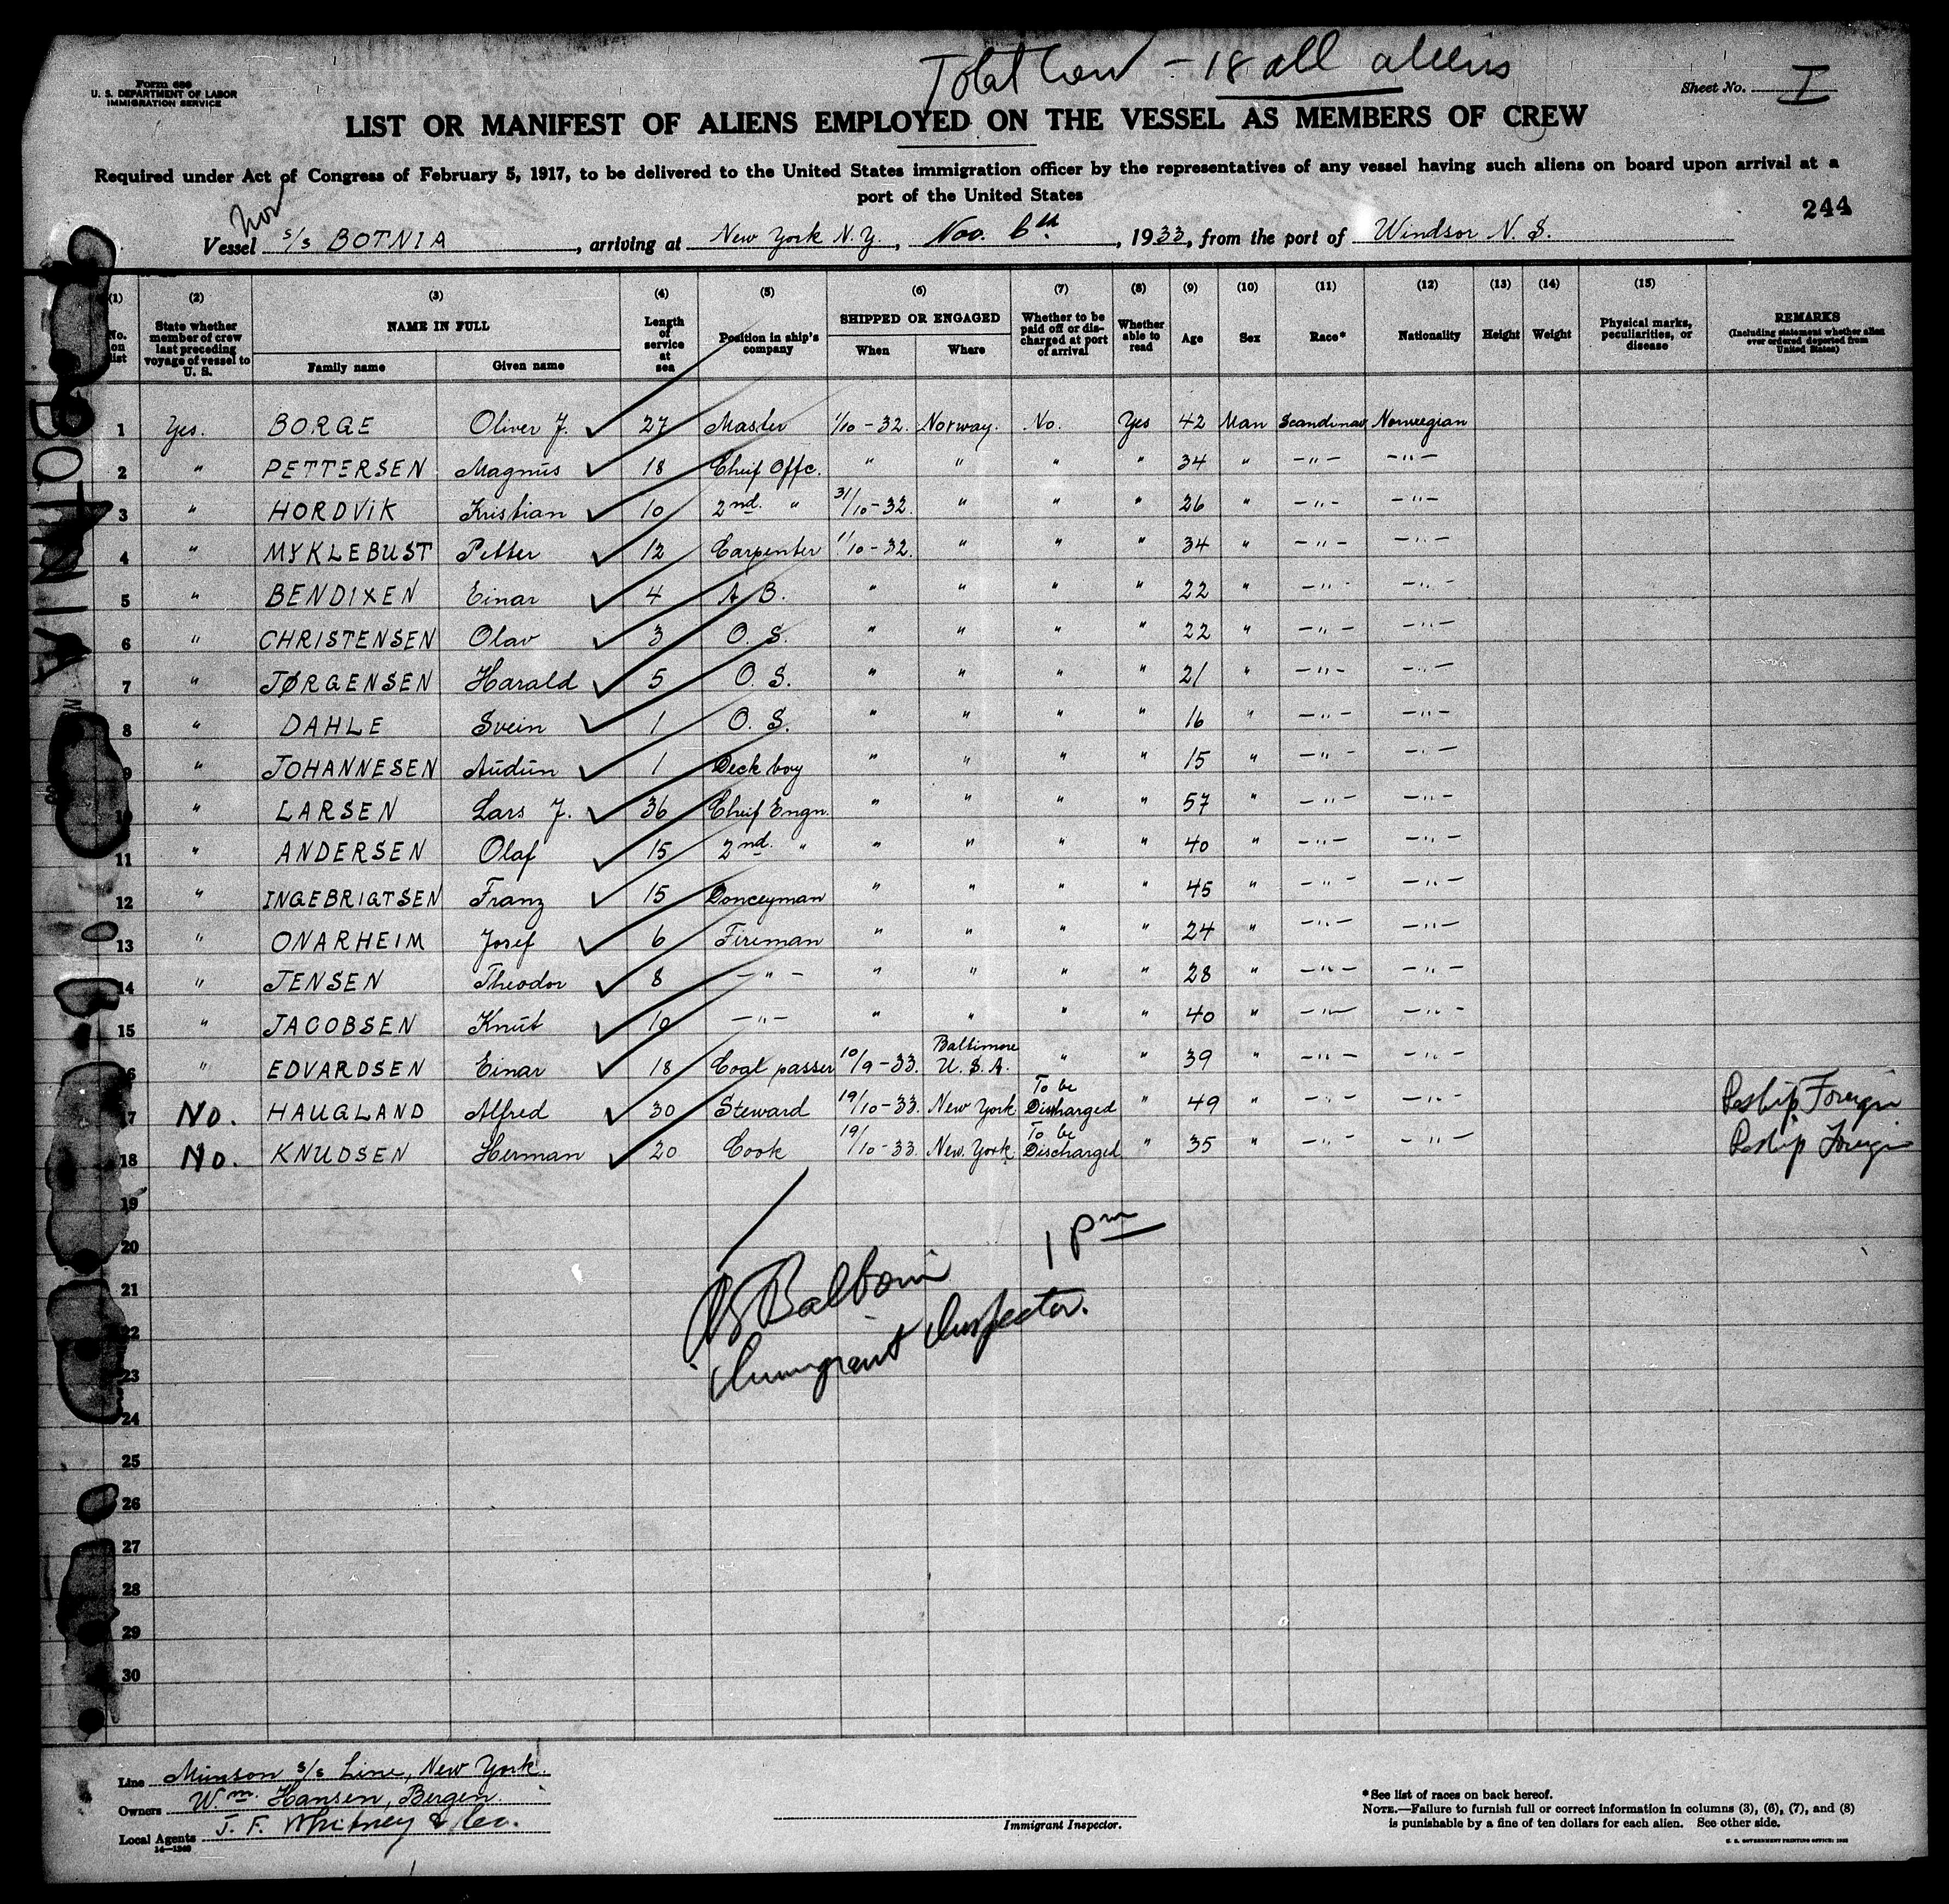 Total Crew - 18 all aliens
Form 689
U. S. DEPARTMENT OF LABOR
IMMIGRATION SERVICE
Sheet No. I
LIST OR MANIFEST OF ALIENS EMPLOYED ON THE VESSEL AS MEMBERS OF CREW
Required under Act of Congress of February 5, 1917, to be delivered to the United States immigration officer by the representatives of any vessel having such aliens on board upon arrival at a
port of the United States
244
Nor
Vessel s/s BOTNIA, arriving at New York N.Y., Nov. 6th, 1933, from the port of Windsor N. S.
BOTNIA
(1) (2) (3) (4) (5) (6) (7) (8) (9) (10) (11) (12) (13) (14) (15)
No. on list | State whether member of crew last preceding voyage of vessel to U. S. | NAME IN FULL | Family name | Given name | Length of service at sea | Position in ship's company | SHIPPED OR ENGAGED | When | Where | Whether to be paid off or discharged at port of arrival | Whether able to read | Age | Sex | Race* | Nationality | Height | Weight | Physical marks, peculiarities, or disease | REMARKS (Including statement whether alien ever ordered deported from United States)
1 Yes. BORGE Oliver J. 27 Master 1/10-32. Norway. No. Yes 42 Man Scandinav Norwegian
2 " PETTERSEN Magnus 18 Cheif Offc. " " " " 34 " -"- -"-
3 " HORDVIK Kristian 10 2nd. " 31/10-32. " " " 26 " -"- -"-
4 " MYKLEBUST Petter 12 Carpenter 1/10-32. " " " 34 " -"- -"-
5 " BENDIXEN Einar 4 A B. " " " " 22 " -"- -"-
6 " CHRISTENSEN Olav 3 O. S. " " " " 22 " -"- -"-
7 " JØRGENSEN Harald 5 O. S. " " " " 21 " -"- -"-
8 " DAHLE Svein 1 O. S. " " " " 16 " -"- -"-
9 " JOHANNESEN Audun 1 Deck boy " " " " 15 " -"- -"-
10 " LARSEN Lars J. 36 Cheif Engn. " " " " 57 " -"- -"-
11 " ANDERSEN Olaf 15 2nd. " " " " " 40 " -"- -"-
12 " INGEBRIGTSEN Franz 15 Donceyman " " " " 45 " -"- -"-
13 " ONARHEIM Josef 6 Fireman " " " " 24 " -"- -"-
14 " JENSEN Theodor 8 -"- " " " " 28 " -"- -"-
15 " JACOBSEN Knut 10 -"- " " " " 40 " -"- -"-
16 " EDVARDSEN Einar 18 Coal passer 10/9-33. Baltimore U. S. A. " " 39 " -"- -"-
17 No. HAUGLAND Alfred 30 Steward 19/10-33. New York To be Discharged " 49 " -"- -"- Reship Foreign
18 No. KNUDSEN Herman 20 Cook 19/10-33. New York To be Discharged " 35 " -"- -"- Reship Foreign
19
20
21
22
23
24
25
26
27
28
29
30
1 Pm
Immigrant Inspector.
Line Munson s/s Line, New York.
Owners Wm. Hansen, Bergen.
Local Agents J. F. Whitney & Co.
14-1240
Immigrant Inspector.
*See list of races on back hereof.
NOTE.—Failure to furnish full or correct information in columns (3), (6), (7), and (8)
is punishable by a fine of ten dollars for each alien. See other side.